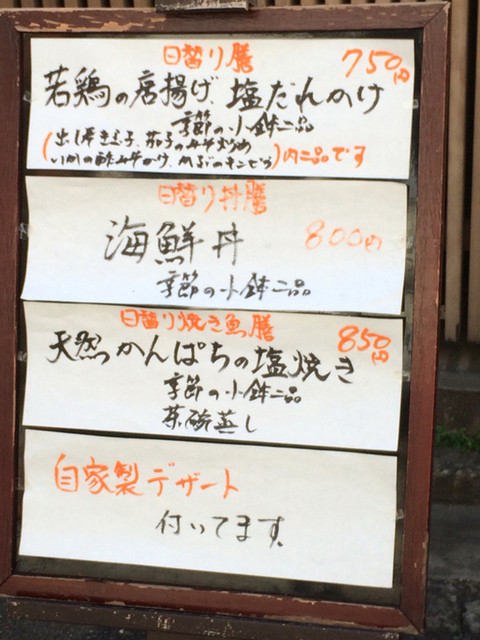 日替り膳 750円
若鶏の唐揚げ、塩だれかけ
季節の小鉢二品
(出し巻き玉子、茄子のみそ炒め
いかの酢みそかけ、かぶのキンピラ)内二品です
日替り丼膳
海鮮丼 800円
季節の小鉢二品
日替り焼き魚膳 850円
天然かんぱちの塩焼き
季節の小鉢二品
茶碗蒸し
自家製デザート
付いてます。